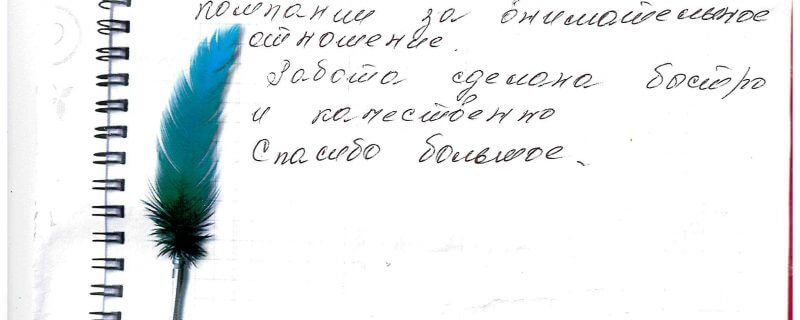 компании за внимательное
отношение.
Работа сделана быстро
и качественно
Спасибо большое.